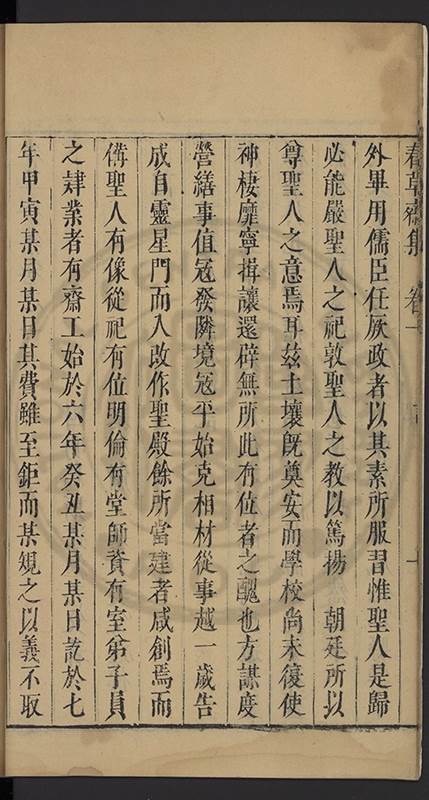 春草齋集 卷一 記
外畢用儒臣任厥政者以其素所服習惟聖人是歸
必能嚴聖人之祀敦聖人之教以篤揚 朝廷所以
尊聖人之意焉耳兹土壤旣奠安而學校尚未復使
神棲靡寧揖讓還辟無所此有位者之醜也方謀度
營繕事值冦發隣境冦平始克相材從事越一歲告
成自靈星門而入改作聖殿餘所當建者咸創焉而
備聖人有像從祀有位明倫有堂師資有室弟子員
之肄業者有齋工始於六年癸丑某月某日訖於七
年甲寅某月某日其費雖至鉅而某規之以義不取